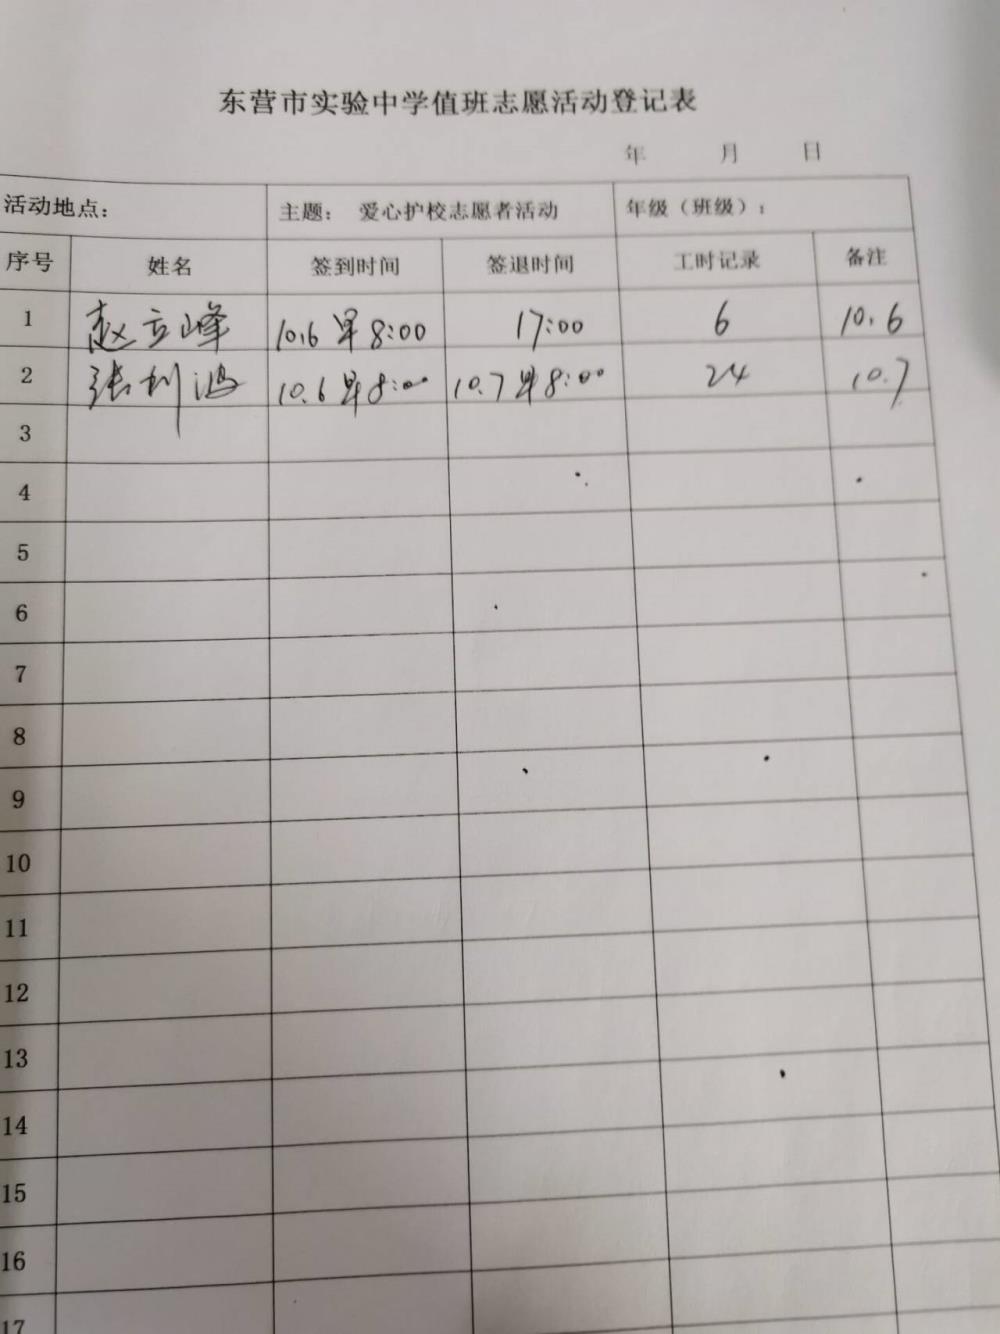 东营市实验中学值班志愿活动登记表
年 月 日
活动地点: 主题: 爱心护校志愿者活动 年级（班级）:
序号 姓名 签到时间 签退时间 工时记录 备注
1 赵立峰 10.6 早8:00 17:00 6 10.6
2 张利鸿 10.6 早8:00 10.7 早8:00 24 10.7
3
4
5
6
7
8
9
10
11
12
13
14
15
16
17